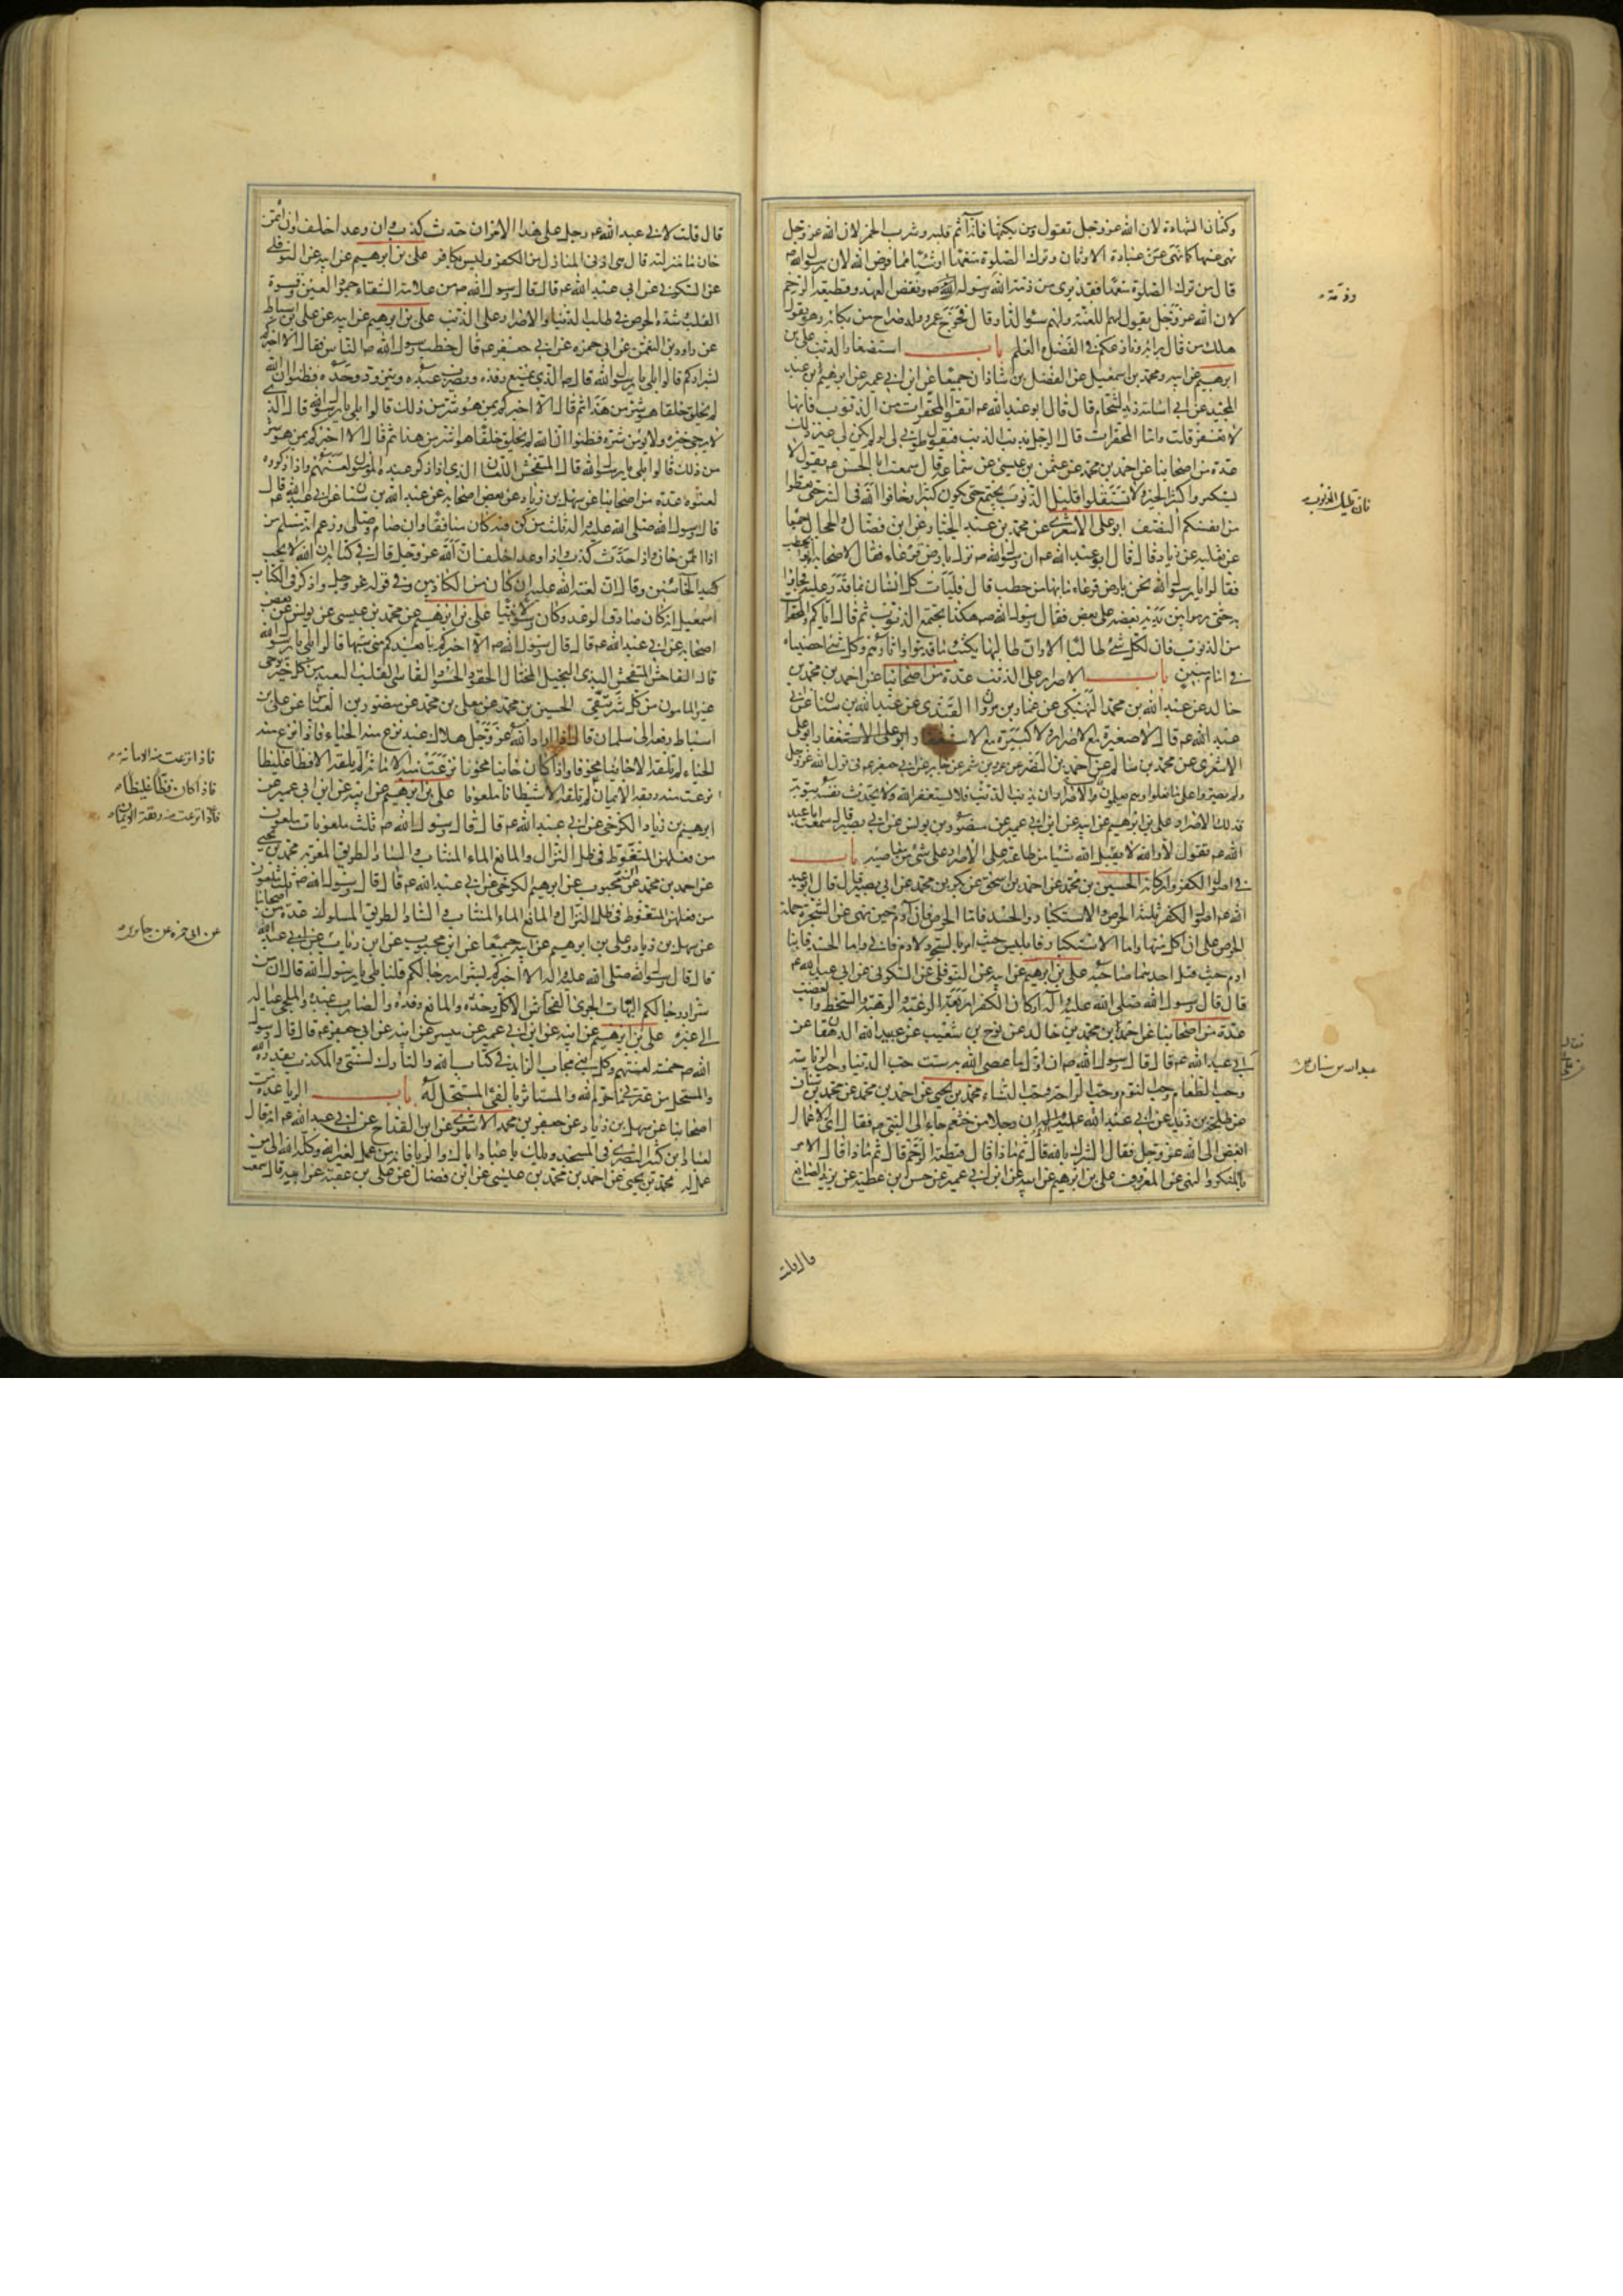 وكتمان الشهادة لان الله عز وجل يقول ومن يكتمها فانه آثم قلبه وشرب الخمر لان الله عز وجل
نهى عنها كما نهى عن عبادة الاوثان وترك الصلوة متعمدا او شيئا مما فرض الله لان رسول الله ص
قال من ترك الصلوة متعمدا فقد برئ من ذمة الله وذمة رسول الله ص ونقض العهد وقطيعة الرحم
لان الله عز وجل يقول لهم اللعنة ولهم سوء الدار قال فخرج عمرو وله صراخ من بكائه وهو يقول
هلك من قال برايه ونازعكم في الفضل والعلم باب استصغار الذنب علي بن
ابرهيم عن ابيه ومحمد بن اسمعيل عن الفضل بن شاذان جميعا عن ابن ابي عمير عن ابرهيم بن عبد
الحميد عن ابي اسامة زيد الشحام قال قال ابو عبد الله ع اتقوا المحقرات من الذنوب فانها
لا تغفر قلت وما المحقرات قال الرجل يذنب الذنب فيقول طوبى لي لو لم يكن لي غير ذلك
عدة من اصحابنا عن احمد بن محمد عن عثمن بن عيسى عن سماعة قال سمعت ابا الحسن ع يقول لا
تستكثروا كثير الخير ولا تستقلوا قليل الذنوب يجتمع حتى يكون كثيرا وخافوا الله في السر حتى تعطوا
من انفسكم النصف ابو علي الاشعري عن محمد بن عبد الجبار وعن ابن فضال والحجال جميعا
عن ثعلبة عن زياد قال قال ابو عبد الله ع ان رسول الله ص نزل بارض قرعاء فقال لاصحابه ائتوا بحطب
فقالوا يا رسول الله نحن بارض قرعاء ما بها من حطب قال فليات كل انسان بما قدر عليه فجاؤا
به حتى رموا بين يديه بعضه على بعض فقال رسول الله ص هكذا يجتمع الذنوب ثم قال اياكم والمحقرات
من الذنوب فان لكل شئ طالبا الا وان طالبها يكتب ما قدموا واثارهم وكل شئ احصيناه
في امام مبين باب الاصرار على الذنب عدة من اصحابنا عن احمد بن محمد بن
خالد عن عبد الله بن محمد النهيكي عن عمار بن مروان القندي عن عبد الله بن سنان عن ابي
عبد الله ع قال لا صغيرة مع الاصرار ولا كبيرة مع الاستغفار ابو علي
الاشعري عن محمد بن سالم عن احمد بن النضر عن عمرو بن شمر عن جابر عن ابي جعفر ع في قول الله عز وجل
ولم يصروا على ما فعلوا وهم يعلمون قال الاصرار ان يذنب الذنب فلا يستغفر الله ولا يحدث نفسه بتوبة
فذلك الاصرار علي بن ابرهيم عن ابيه عن ابن ابي عمير عن منصور بن يونس عن ابي بصير قال سمعت ابا عبد
الله ع يقول لا والله لا يقبل الله شيئا من طاعته على الاصرار على شئ من معاصيه باب
في اصول الكفر واركانه الحسين بن محمد عن احمد بن اسحق عن بكر بن محمد عن ابي بصير قال قال ابو عبد
الله ع اصول الكفر ثلثة الحرص والاستكبار والحسد فاما الحرص فان آدم حين نهي عن الشجرة حمله
الحرص على ان اكل منها واما الاستكبار فابليس حيث امر بالسجود لآدم فابى واما الحسد فابنا
ادم حيث قتل احدهما صاحبه علي بن ابرهيم عن ابيه عن النوفلي عن السكوني عن ابي عبد الله ع
قال قال رسول الله صلى الله عليه وآله اركان الكفر اربعة الرغبة والرهبة والسخط والغضب
عدة من اصحابنا عن احمد بن محمد بن خالد عن نوح بن شعيب عن عبيد الله الدهقان عن
ابي عبد الله ع قال قال رسول الله ص ان اول ما عصي الله به ست حب الدنيا وحب الرياسة
وحب الطعام وحب النوم وحب الراحة وحب النساء محمد بن يحيى عن احمد بن محمد عن محمد بن سنان
عن طلحة بن زيد عن ابي عبد الله عليه السلام ان رجلا من خثعم جاء الى النبي ص فقال اي الاعمال
ابغض الى الله عز وجل فقال الشرك بالله قال ثم ماذا قال قطيعة الرحم قال ثم ماذا قال الامر
بالمنكر والنهي عن المعروف علي بن ابرهيم عن ابيه عن ابن ابي عمير عن حسن بن عطية عن يزيد الصائغ
قال قلت
وذمته
فان قليل الذنوب
عبد الله بن سنان عن
قال قلت لابي عبد الله ع رجل على هذا الامر ان حدث كذب وان وعد اخلف وان ائتمن
خان ما منزلته قال هي ادنى المنازل من الكفر وليس بكافر علي بن ابرهيم عن ابيه عن النوفلي
عن السكوني عن ابي عبد الله ع قال قال رسول الله ص من علامة الشقاء جمود العين وقسوة
القلب وشدة الحرص في طلب الدنيا والاصرار على الذنب علي بن ابرهيم عن ابيه عن علي بن اسباط
عن داود بن النعمن عن ابي حمزة عن ابي جعفر ع قال خطب رسول الله ص الناس فقال الا اخبركم
بشراركم قالوا بلى يا رسول الله قال الذي يمنع رفده ويضرب عبده ويتزود وحده فظنوا ان الله
لم يخلق خلقا هو شر من هذا ثم قال الا اخبركم بمن هو شر من ذلك قالوا بلى يا رسول الله قال الذي
لا يرجى خيره ولا يؤمن شره فظنوا ان الله لم يخلق خلقا هو شر من هذا ثم قال الا اخبركم بمن هو شر
من ذلك قالوا بلى يا رسول الله قال المتفحش اللعان الذي اذا ذكر عنده المؤمنون لعنهم واذا ذكروه
لعنوه عدة من اصحابنا عن سهل بن زياد عن بعض اصحابه عن عبد الله بن سنان عن ابي عبد الله ع قال
قال رسول الله صلى الله عليه واله ثلث من كن فيه كان منافقا وان صام وصلى وزعم انه مسلم من
اذا ائتمن خان واذا حدث كذب واذا وعد اخلف ان الله عز وجل قال في كتابه ان الله لا يحب
كيد الخائنين وقال ان لعنة الله عليه ان كان من الكاذبين وفي قوله عز وجل واذكر في الكتاب
اسمعيل انه كان صادق الوعد وكان رسولا نبيا علي بن ابرهيم عن محمد بن عيسى عن يونس عن بعض
اصحابه عن ابي عبد الله ع قال قال رسول الله ص الا اخبركم بابعدكم مني شبها قالوا بلى يا رسول الله
قال الفاحش المتفحش البذي البخيل المختال الحقود الحسود القاسي القلب البعيد من كل خير يرجى
غير المامون من كل شر يتقى الحسين بن محمد عن معلى بن محمد عن منصور بن العباس عن علي بن
اسباط رفعه الى سلمان قال اذا اراد الله عز وجل هلاك عبد نزع منه الحياء فاذا نزع منه
الحياء لم تلقه الا خائنا مخونا فاذا كان خائنا مخونا نزعت منه الامانة لم تلقه الا فظا غليظا
نزعت منه ربقة الايمان لم تلقه الا شيطانا ملعونا علي بن ابرهيم عن ابيه عن ابن ابي عمير عن
ابرهيم بن زياد الكرخي عن ابي عبد الله ع قال قال رسول الله ص ثلث ملعونات ملعون
من فعلهن المتغوط في ظل النزال والمانع الماء المنتاب والساد الطريق المعربة محمد بن يحيى
عن احمد بن محمد عن ابن محبوب عن ابرهيم الكرخي عن ابي عبد الله ع قال قال رسول الله ص ثلث ملعون
من فعلهن المتغوط في ظل النزال والمانع الماء المنتاب والساد الطريق المسلوك عدة من اصحابنا
عن سهل بن زياد وعلي بن ابرهيم عن ابيه جميعا عن ابن محبوب عن ابن رئاب عن ابي عبد الله
قال قال رسول الله صلى الله عليه واله الا اخبركم بشرار رجالكم قلنا بلى يا رسول الله قال ان من
شرار رجالكم البهات الجرئ الفحاش الاكل وحده والمانع رفده والضارب عبده والملجئ عياله
الى غيره علي بن ابرهيم عن ابيه عن ابن ابي عمير عن ميسر عن ابيه عن ابي جعفر ع قال قال رسول
الله ص خمسة لعنتهم وكل نبي مجاب الزايد في كتاب الله والتارك لسنتي والمكذب بقدر الله
والمستحل من عترتي ما حرم الله والمستاثر بالفئ المستحل له باب الريا عدة من
اصحابنا عن سهل بن زياد عن جعفر بن محمد الاشعري عن ابن القداح عن ابي عبد الله ع انه قال
لعباد بن كثير البصري في المسجد ويلك يا عباد اياك والريا فانه من عمل لغير الله وكله الله الى من
عمل له محمد بن يحيى عن احمد بن محمد بن عيسى عن ابن فضال عن علي بن عقبة عن ابيه قال سمعت
فاذا نزعت منه الامانة
فاذا كان فظا غليظا
فاذا نزعت منه ربقة الايمان
عن ابي حمزة عن جابر